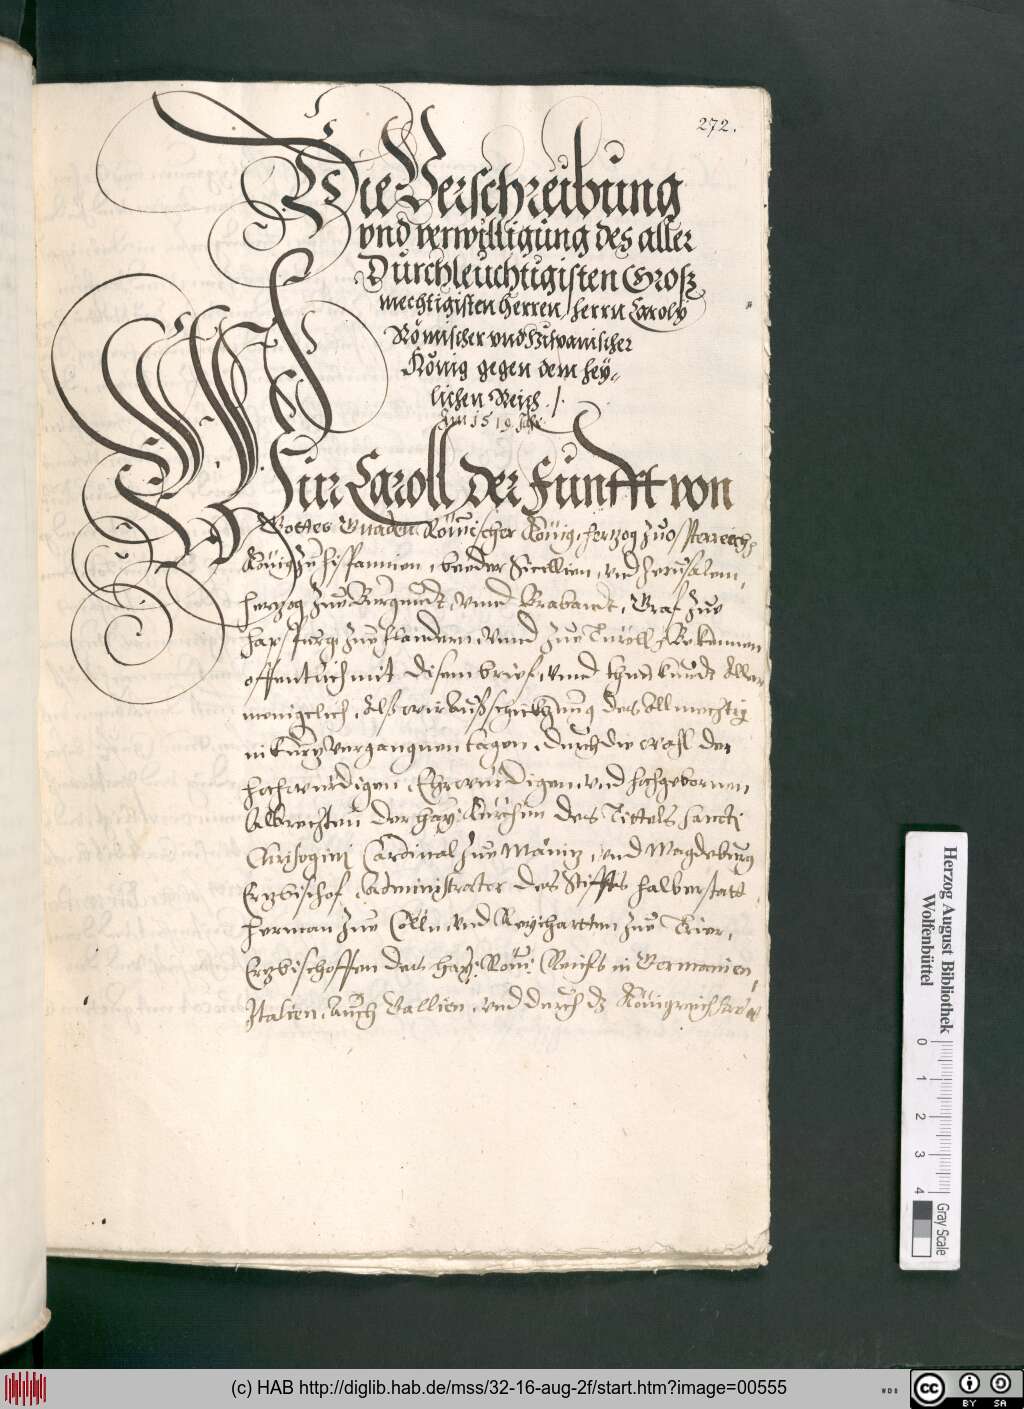 272.
Die Verschreibung
vnd verwilligung des aller
Durchleuchtigisten Groß
mechtigisten Herren, herrn Caroly
Römischer vnd Hispanischer
König gegen dem hey„
lichen Reich ./.
Im 1519
Wir Caroll der Funfft von
Gottes Gnaden Römischer König, hertzog zuo Osterreich,
König zu hispannien, beeder Sicillien, vnd Jerusalem,
hertzog zue Burgundt, vnnd Brabandt, Graf zue
Hapspurg, zue Flandern, vnnd zue Tiroll, Bekennen
offentlich mit disem brief, vnnd thun kundt Aller
menigelich, Alß wir auß schickhung des Allmechtig
in kurtz vergangnen tagen, durch die wahl der
hochwürdigen, Ehrwürdigen, vnd hochgebornen
Albrechten der hay: Kürchen des Tittels sancti
Chrisogini Cardinal zue Maintz, vnd Magdeburg
Ertzbischof, Administrator des Stiffts halberstatt
Herman zue Cölln, vnd Reycharten zue Trier,
Ertzbischoffen des hay: Röm: Reichs in Germanien,
Italien, Auch Gallien, vnd durch dz Königreich
Herzog August Bibliothek
Wolfenbüttel
0 1 2 3 4
Gray Scale
(c) HAB http://diglib.hab.de/mss/32-16-aug-2f/start.htm?image=00555
WDB
cc BY SA